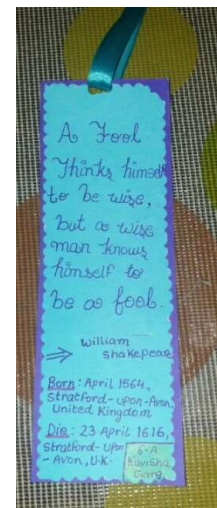 A Fool
Thinks himself
to be wise,
but a wise
man knows
himself to
be a fool.
William
Shakepeare
Born: April 1564,
Stratford-upon-Avon,
United Kingdom
Die: 23 April 1616,
Stratford-upon
-Avon, U.K.
6-A
Garg